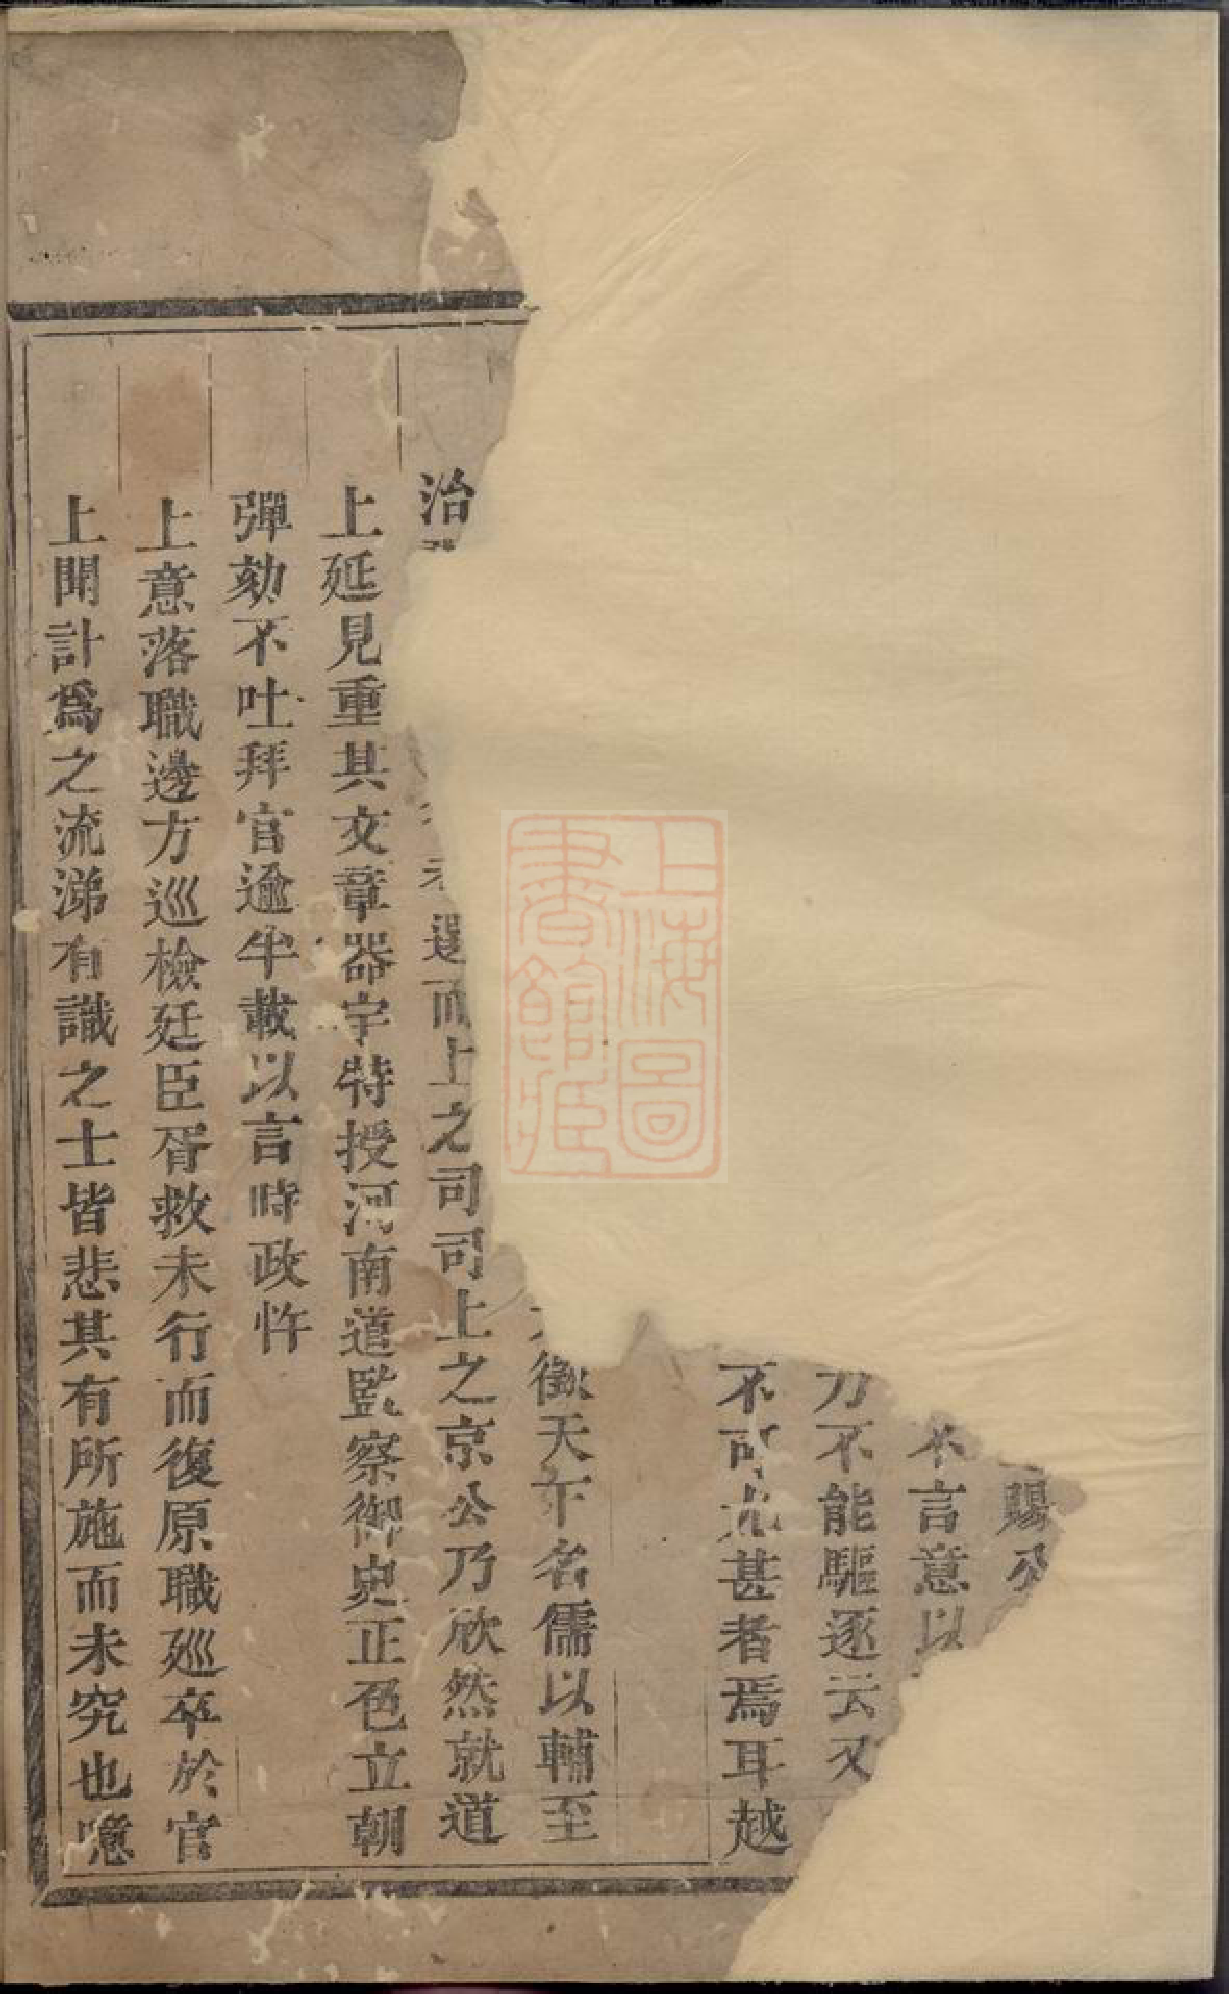 賜公
不言意以
力不能驅逐云又
不可尤甚者焉耳越
徵天下名儒以輔至
治
選而上之司司上之京公乃欣然就道
上延見重其文章器宇特授河南道監察御史正色立朝
彈劾不吐拜官逾半載以言時政忤
上意落職邊方巡檢廷臣胥救未行而復原職廵卒於官
上聞訃爲之流涕有識之士皆悲其有所施而未究也噫
上海圖書館藏